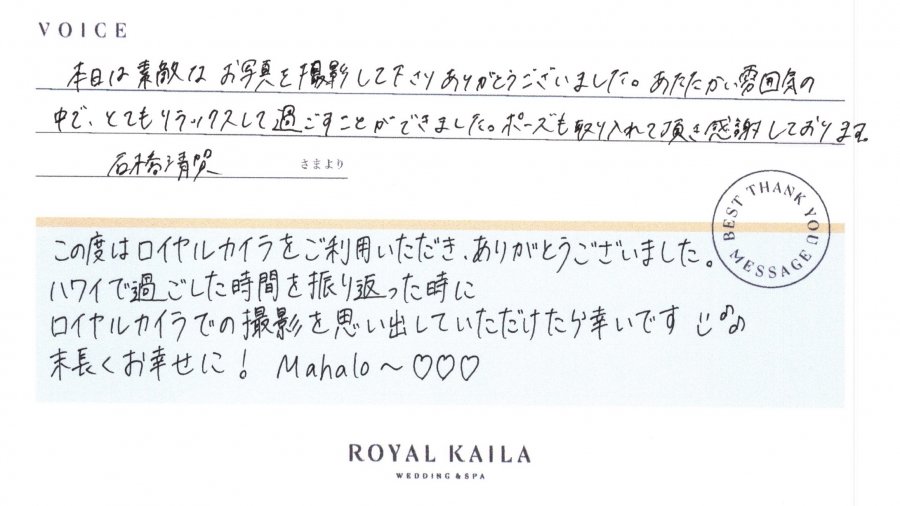 VOICE
本日は素敵なお写真を撮影して下さりありがとうございました。あたたかい雰囲気の
中で、とてもリラックスして過ごすことができました。ポーズも取り入れて頂き感謝しております。
石橋清賀 さまより
BEST THANK YOU MESSAGE
この度はロイヤルカイラをご利用いただき、ありがとうございました。
ハワイで過ごした時間を振り返った時に
ロイヤルカイラでの撮影を思い出していただけたら幸いです
末長くお幸せに! Mahalo〜♡♡♡
ROYAL KAILA
WEDDING & SPA